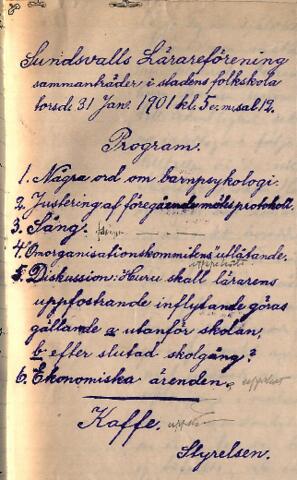 Sundsvalls Lärareförening
sammanträder i stadens folkskola
torsd. 31 Jan. 1901 kl. 5 e.m. sal 12.
Program.
1. Några ord om barnpsykologi.
2. Justering af föregående mötes protokoll.
3. Sång.
4. Omorganisationskommitens utlåtande.
5. Diskussion: Huru skall lärarens
uppfostrande inflytande göras
gällande a: utanför skolan,
b: efter slutad skolgång?
6. Ekonomiska ärenden.
Kaffe.
Styrelsen.